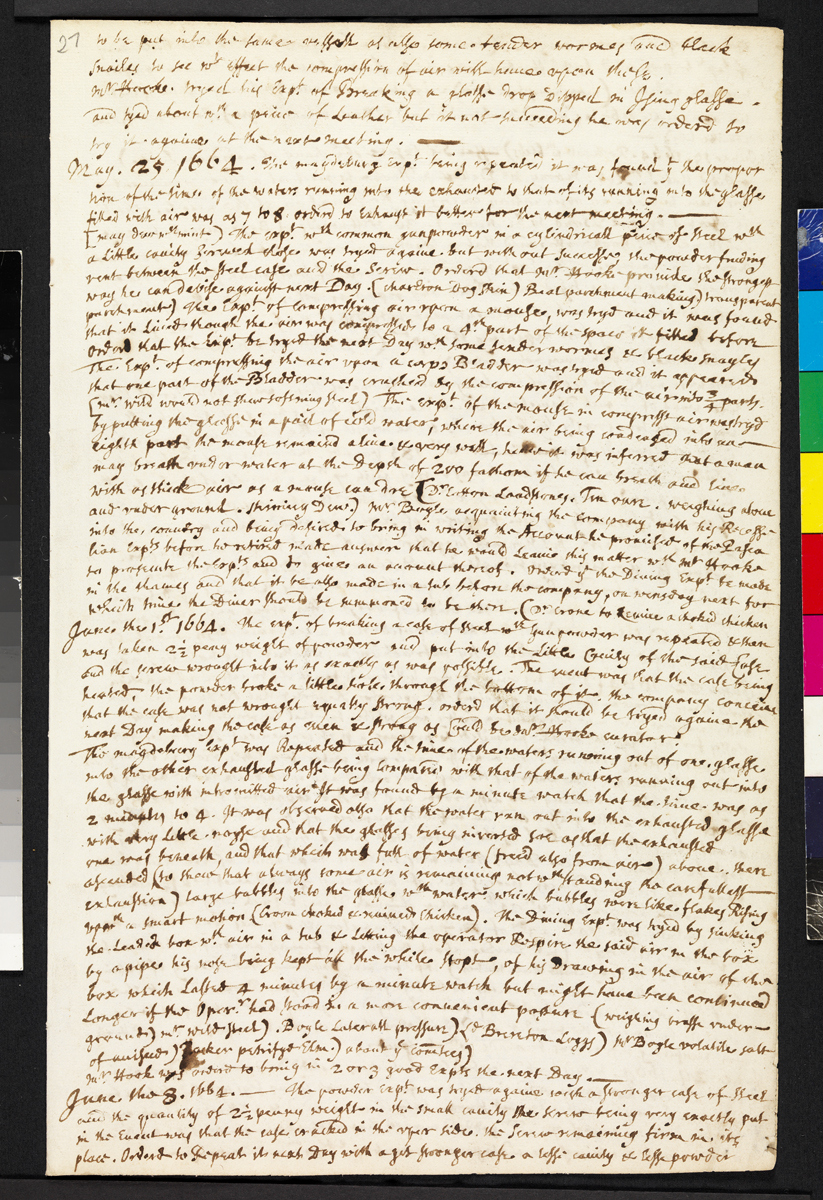 27
to be put into the same vessell as also some tender wormes and black
snailes to see wt effect the compression of air will have upon these.
Mr. Hooke tryed his Expt of breaking a glasse drop Dipped in Ising glasse
and tyed about wth a peice of Leather but it not succeeding he was orderd to
try it againe at the next meeting.
May. 25 1664. The magdeburg Expt being repeated it was found yt the propor
tion of the time of the waters running into the exhausted to that of its running into the glasse
filled with air was as 7 to 8. orderd to Exhaust it better for the next meeting.
The Expt wth common gunpowder in a cylindricall peice of steel wth
a little cavity screwed close was tryed againe. but with out successe, the powder finding
vent between the steel case and the Screw. Orderd that Mr. Hooke provide the strongest
way he can devise against next Day. (Charlton Dog skin) Beal parchment making) transparent
parchment) The Expt of compressing air upon a mouse, was tryd and it was found
that it Lived though the air was compressd to a 4th part of the space it filled before
Orderd that the Expt be tryed the next Day wth some tender wormes & black snayles
The Expt of compressing the air upon a Bladder was tryed and it appeared
that one part of the Bladder was crushed by the compression of the air into 3/4 parts.
(mr. wild would not shew softning steel) The expt of the mouse in compresst air was tryd
by putting the glasse in a pail of cold water, where the air being condensed into an
eighth part the mouse remaind alive & very well, hence it was inferred that a man
may breath under water at the Depth of 200 fathom if he can breath and live
with as thick air as a mouse can doe (Dr. Cotton Tin oare. weighing above
and under ground. shining Dew.) Mr. Boyle acquainting the company with his Recesse
into the country and being desired to bring in writing the Account he promised of the Pasca
lian Expts before he retired made answer that he would Leave this matter wth Mr Hooke
to prosecute the Expts and to give an account thereof. Orderd yt the Diving Expt be made
in the thames and that it be also made in a tub before the company, on wensday next for
which time the Diver should be summoned to be there. (Dr. Crone to revive a choked chicken
June the 1st 1664. The expt of breaking a case of steel wth gunpowder was repeated & there
was taken 2 1/2 peny weight of powder and put into the Little Cavity of the said case
and the screw wrought into it as exactly as was possible. The event was that the case being
heated, the powder broke a little hole through the bottom of it. the company conceive
that the case was not wrought equally strong. orderd that it should be tryed againe the
next Day making the case as even & strong as could be Mr. Hooke curator
The magdeburg Expt was Repeated and the time of the waters running out of one glasse
into the other exhausted glasse being compared with that of the waters running out into
the glasse with intromitted air. It was found by a minute watch that the time was as
2 minutes to 4. It was observed also that the water ran out into the exhausted glasse
with very Little noyse and that the glasses being inverted soe as that the exhausted
one was beneath, and that which was full of water (freed also from air) above. there
ascended (to shew that always some air is remaining not wthstanding the carefullest
exhaustion) large bubbles into the glasse wth water, which bubbles were like flakes Rising
up wth a smart motion (Croon choked & revived Chicken). The Diving Expt was tryd by sinking
the Leaded box wth air in a tub & Letting the operator Respire the said air in the box
by a pipe his nose being kept all the while stopt, of his Drawing in the air of the
box which Lasted 4 minutes by a minute watch but might have been continued
Longer if the Oper.r had stood in a more convenient posture (weighing brasse under
ground) Mr. Wild steel). Boyle Laterall pressure) (Ld Brereton Loggs) Mr Boyle volatile salt
of aniseed) Packer petrifyd Elm.) about ye
Mr. Hook was orderd to bring in 2 or 3 good Expts the next Day.
June the 8. 1664. The powder Expt was tryed againe with a stronger case of steel
and the quantity of 2 1/2 penny weight in the small cavity the screw being very exactly put
in the Event was that the case cracked in the uper side. the Screw remaining firm in its
place. Orderd to Repeat it next Day with a yet stronger case a lesse cavity & lesse powder